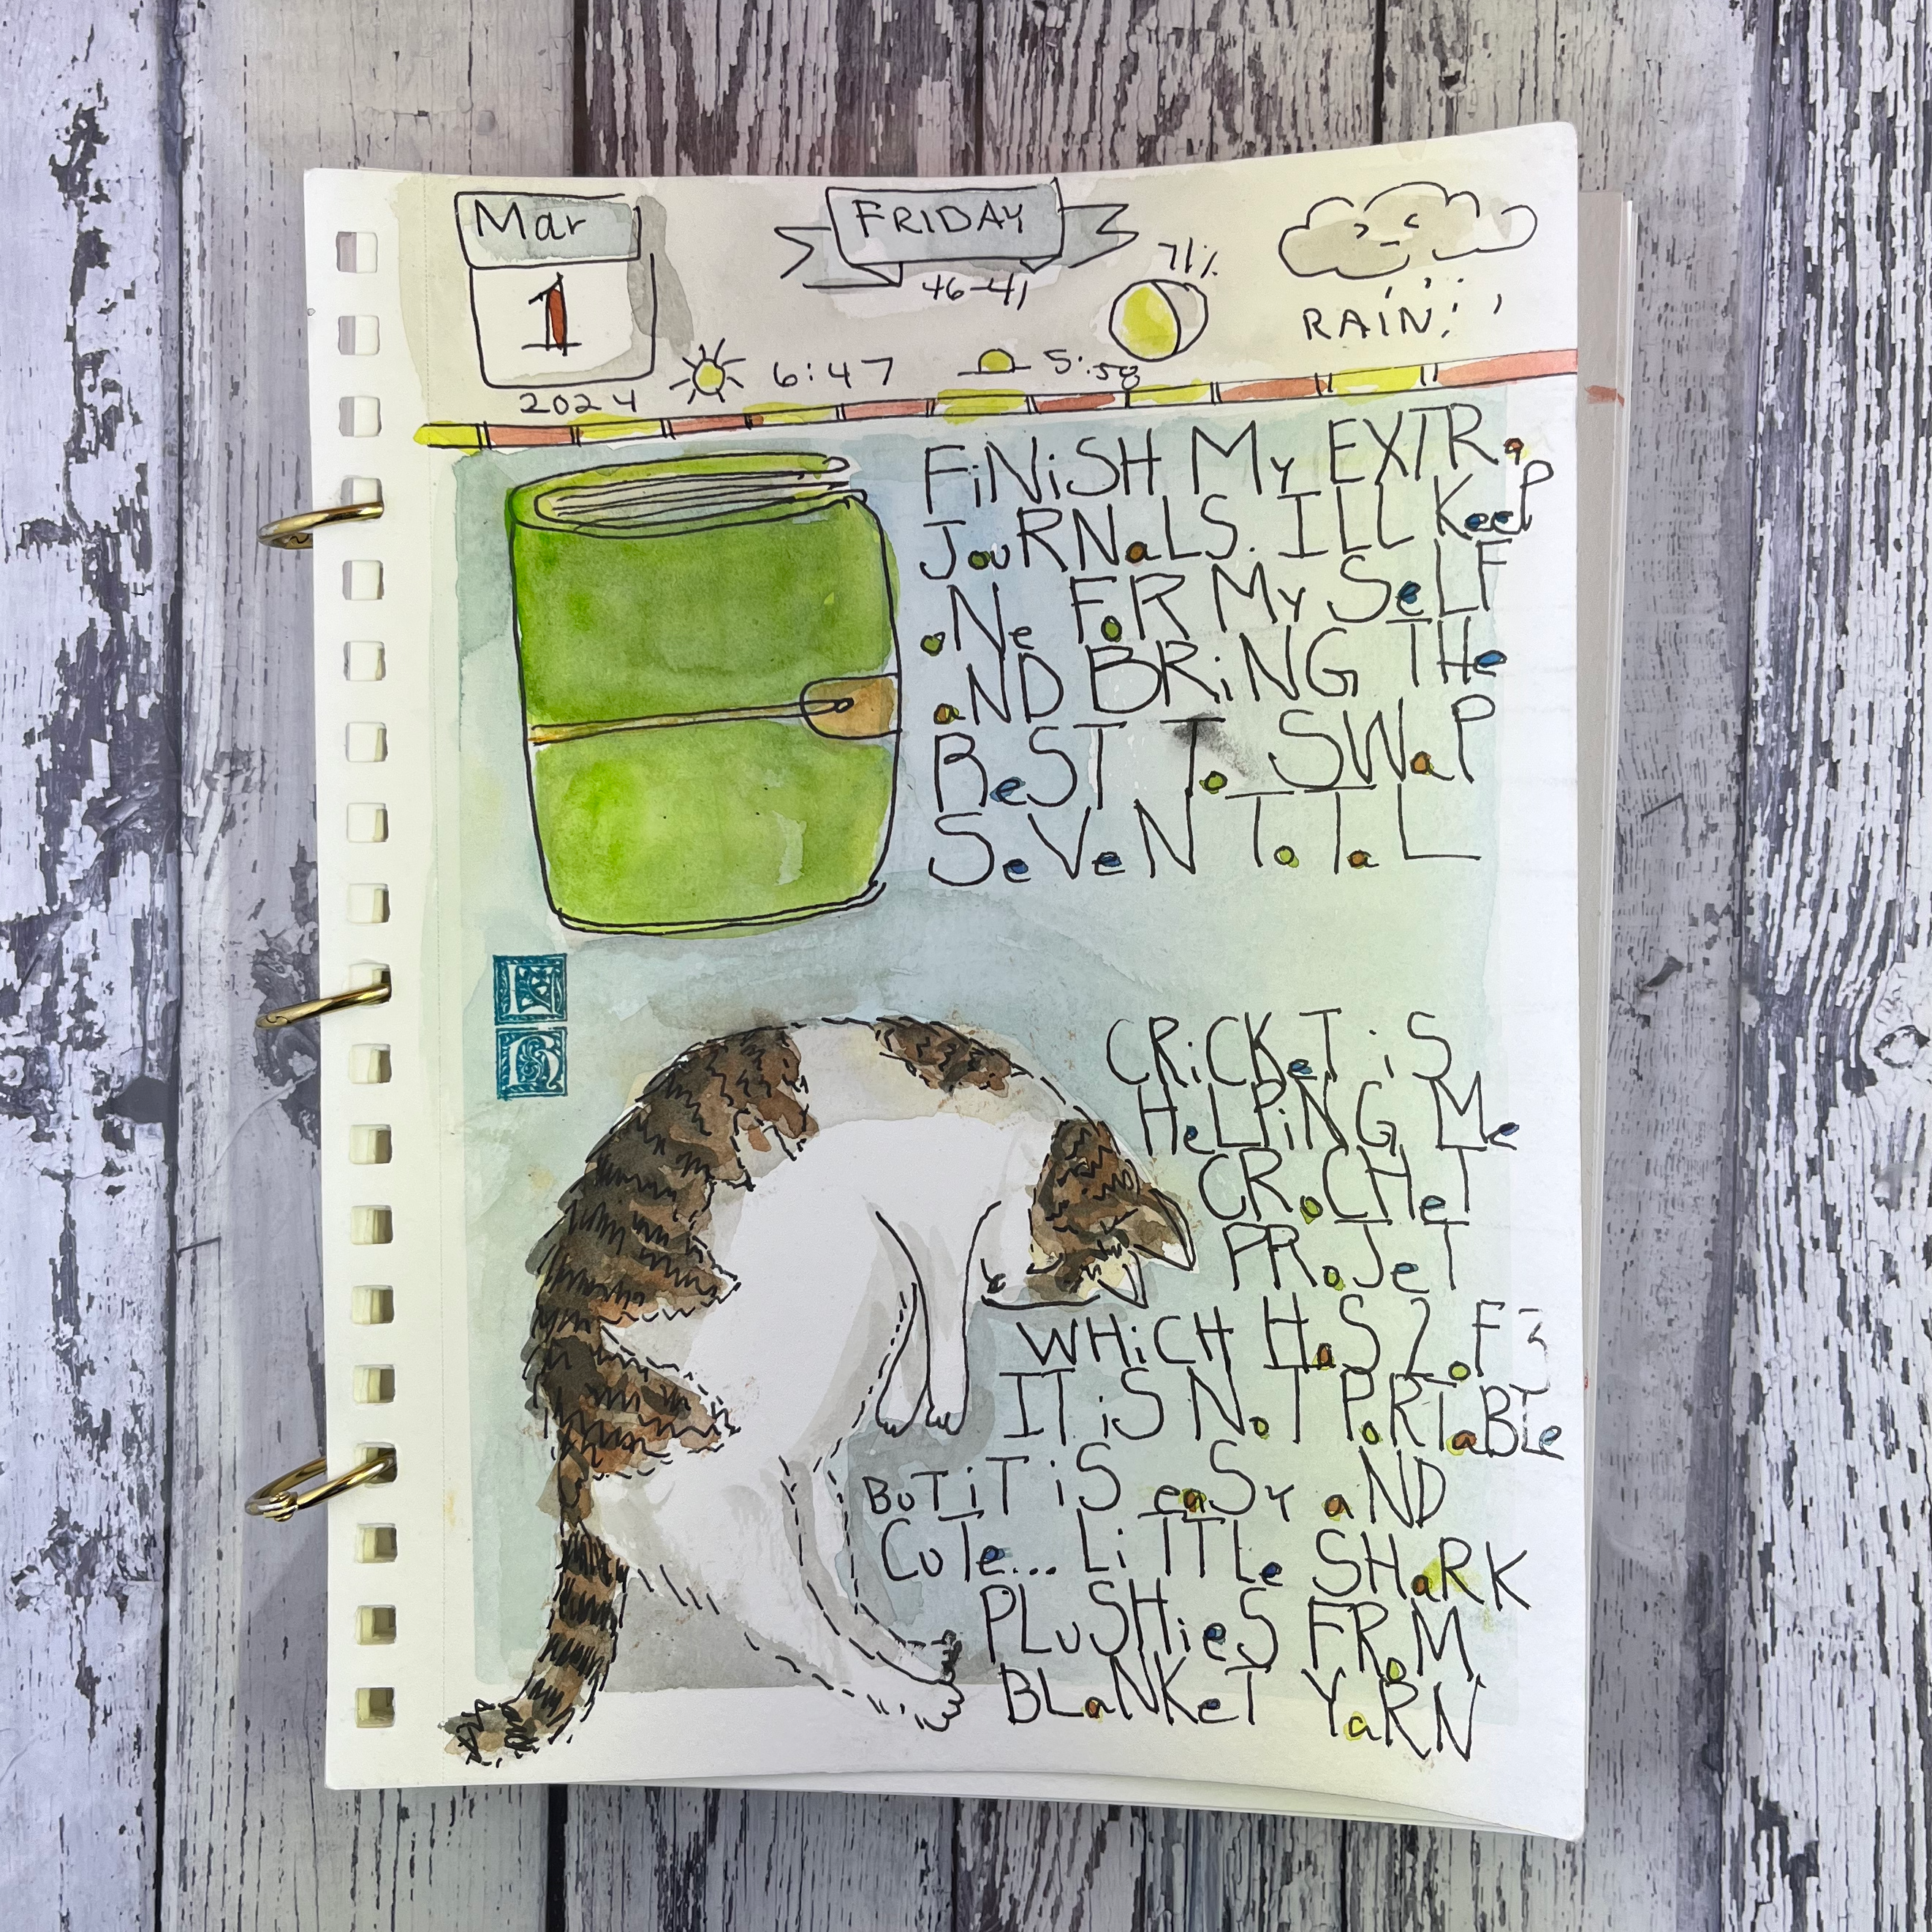 Mar
1
2024
FRIDAY
46-41
71%
RAIN
6:47
5:58
FiNiSH My EXTRa
JouRNaLS. ILL KeeP
oNe FoR MySeLF
aND BRiNG THe
ReST To SWaP
SeVeN ToTaL
CRiCKeT iS
HeLPiNG Me
CRoCHeT
PRoJeT
WHiCH HaS 2 oF 3
IT iS NoT PoRTaBLe
BuT iT iS eaSy aND
CuTe... LiTTLe SHaRK
PLuSHieS FRoM
BLaNKeT YaRN